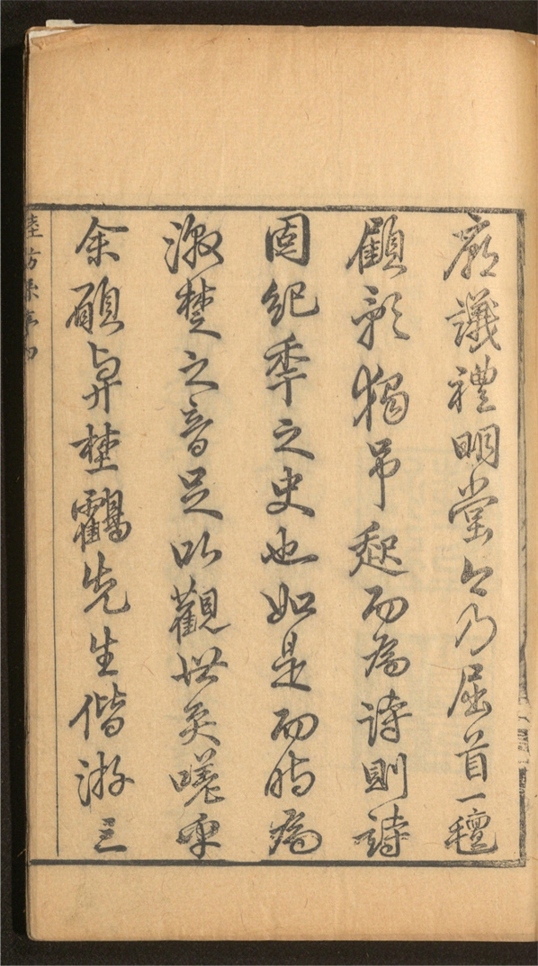 廟議禮明堂今乃屈首一氊
顧影獨吊起而為詩則詩
固紀季之史也如是而時為
激楚之音足以觀世矣嗟乎
余願與埜鶴先生偕游三